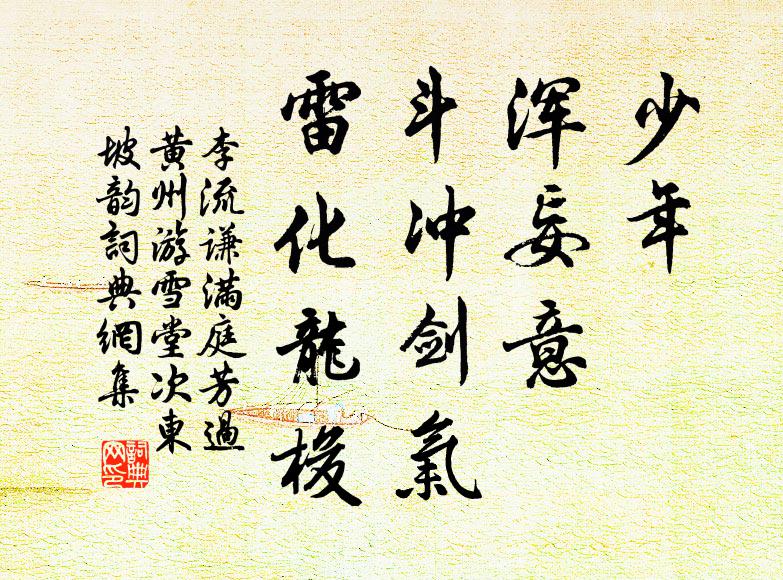 少年
浑妄意
斗冲剑氣
雷化龍梭
李流谦满庭芳過
黄州游雪堂次東
坡韵詞典網集
詞典網印